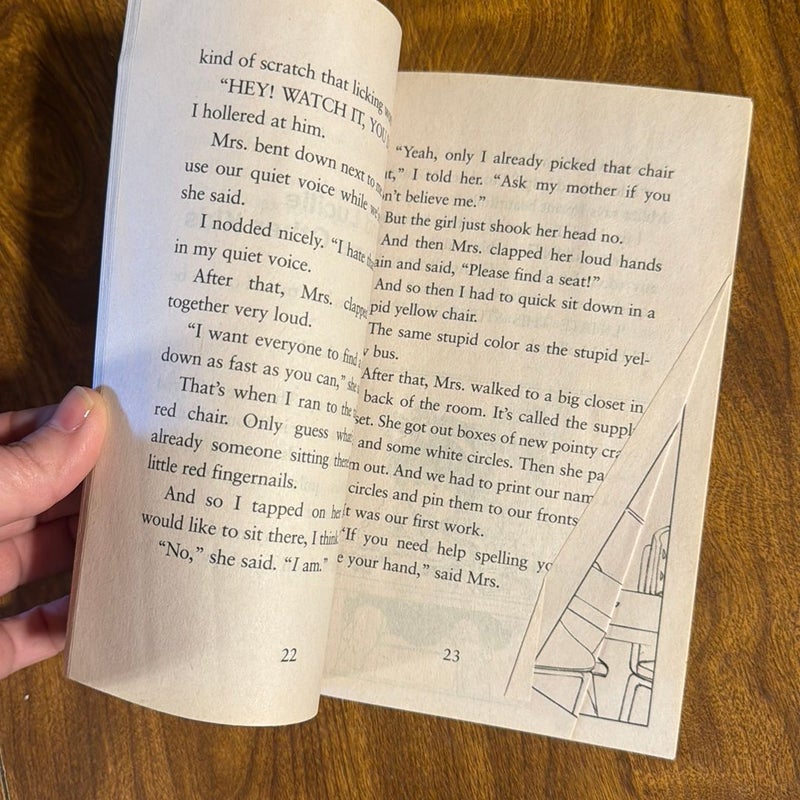 kind of scratch that licking
"HEY! WATCH IT, YOU
I hollered at him.
Mrs. bent down next to
use our quiet voice while
she said.
I nodded nicely. "I hate
in my quiet voice.
After that, Mrs. clapped
together very loud.
"I want everyone to find
down as fast as you can,"
That's when I ran to the
red chair. Only guess
already someone sitting
little red fingernails.
And so I tapped on her
would like to sit there, I think
"No," she said. "I am."
22
"Yeah, only I already picked that chair
I told her. "Ask my mother if you
believe me."
But the girl just shook her head no.
And then Mrs. clapped her loud hands
and said, "Please find a seat!"
And so then I had to quick sit down in a
yellow chair.
The same stupid color as the stupid yel-
bus.
After that, Mrs. walked to a big closet in
back of the room. It's called the
She got out boxes of new pointy
and some white circles. Then she
out. And we had to print our
circles and pin them to our fronts
It was our first work.
"If you need help spelling
your hand," said Mrs.
23